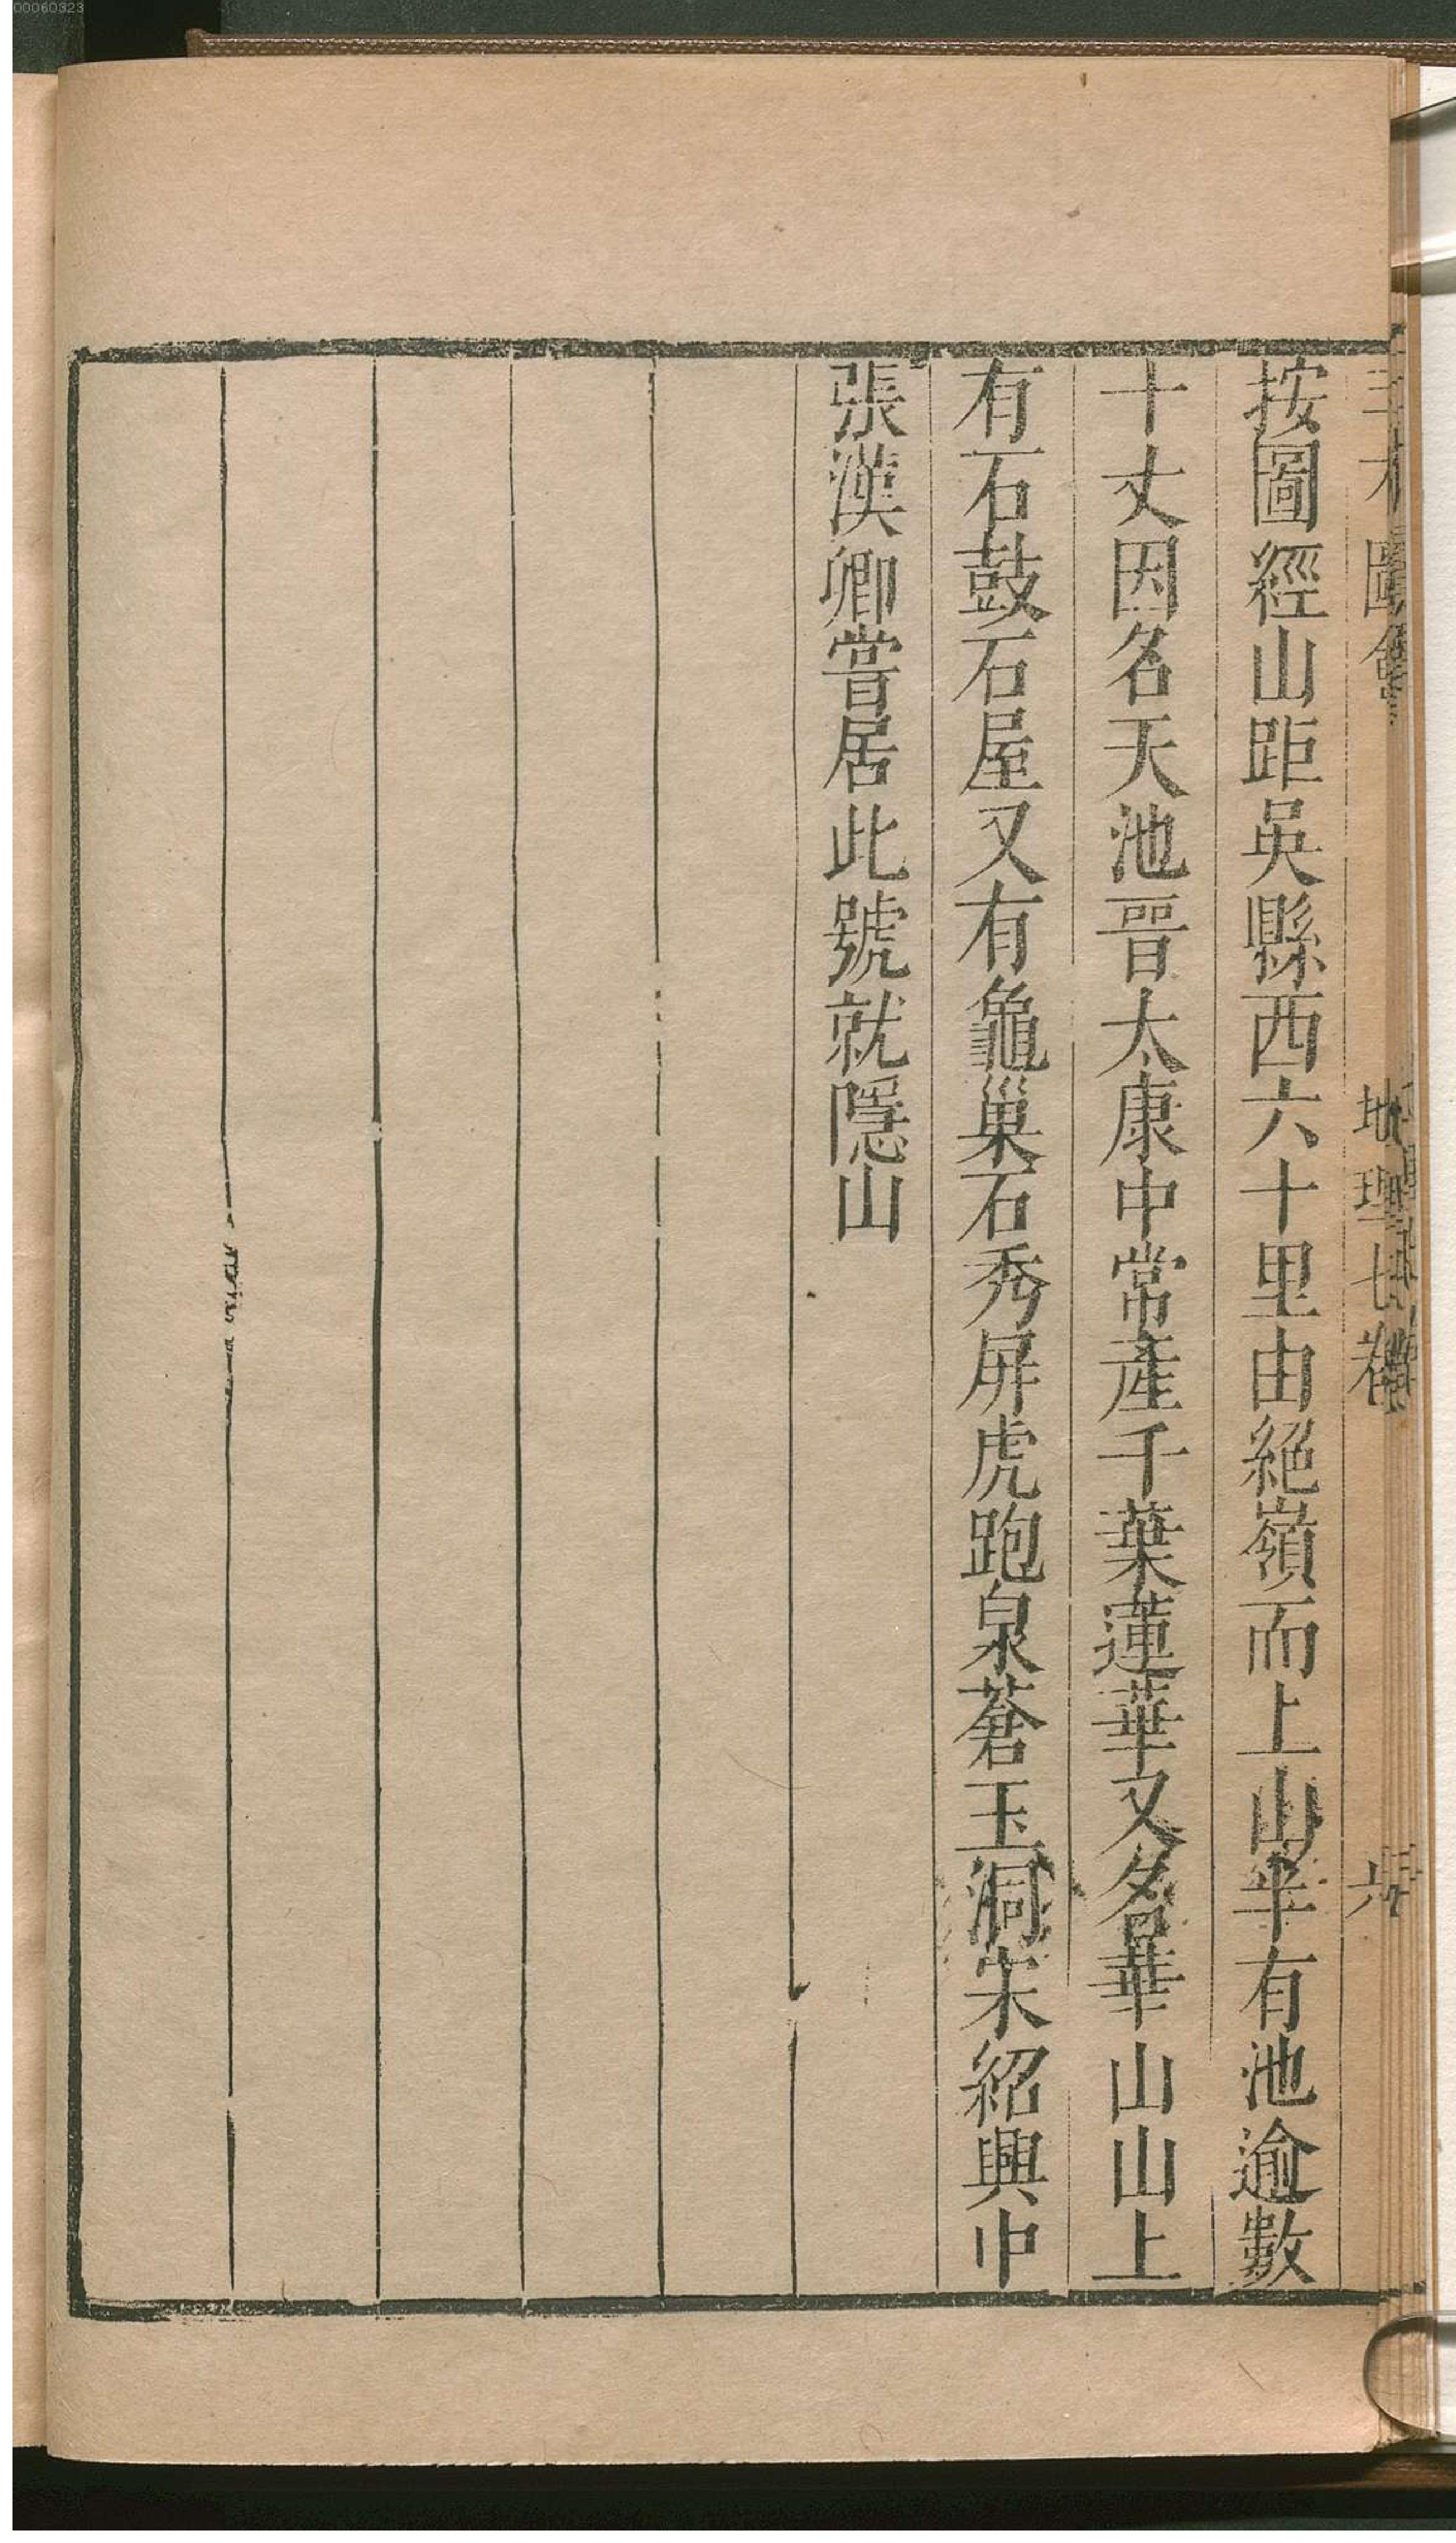 00060323
三才圖會 地理七卷 六
按圖經山距吳縣西六十里由絕嶺而上山半有池逾數
十丈因名天池晉太康中常產千葉蓮華又名華山山上
有石鼓石屋又有龜巢石秀屏虎跑泉蒼玉洞宋紹興中
張漢卿嘗居此號就隱山